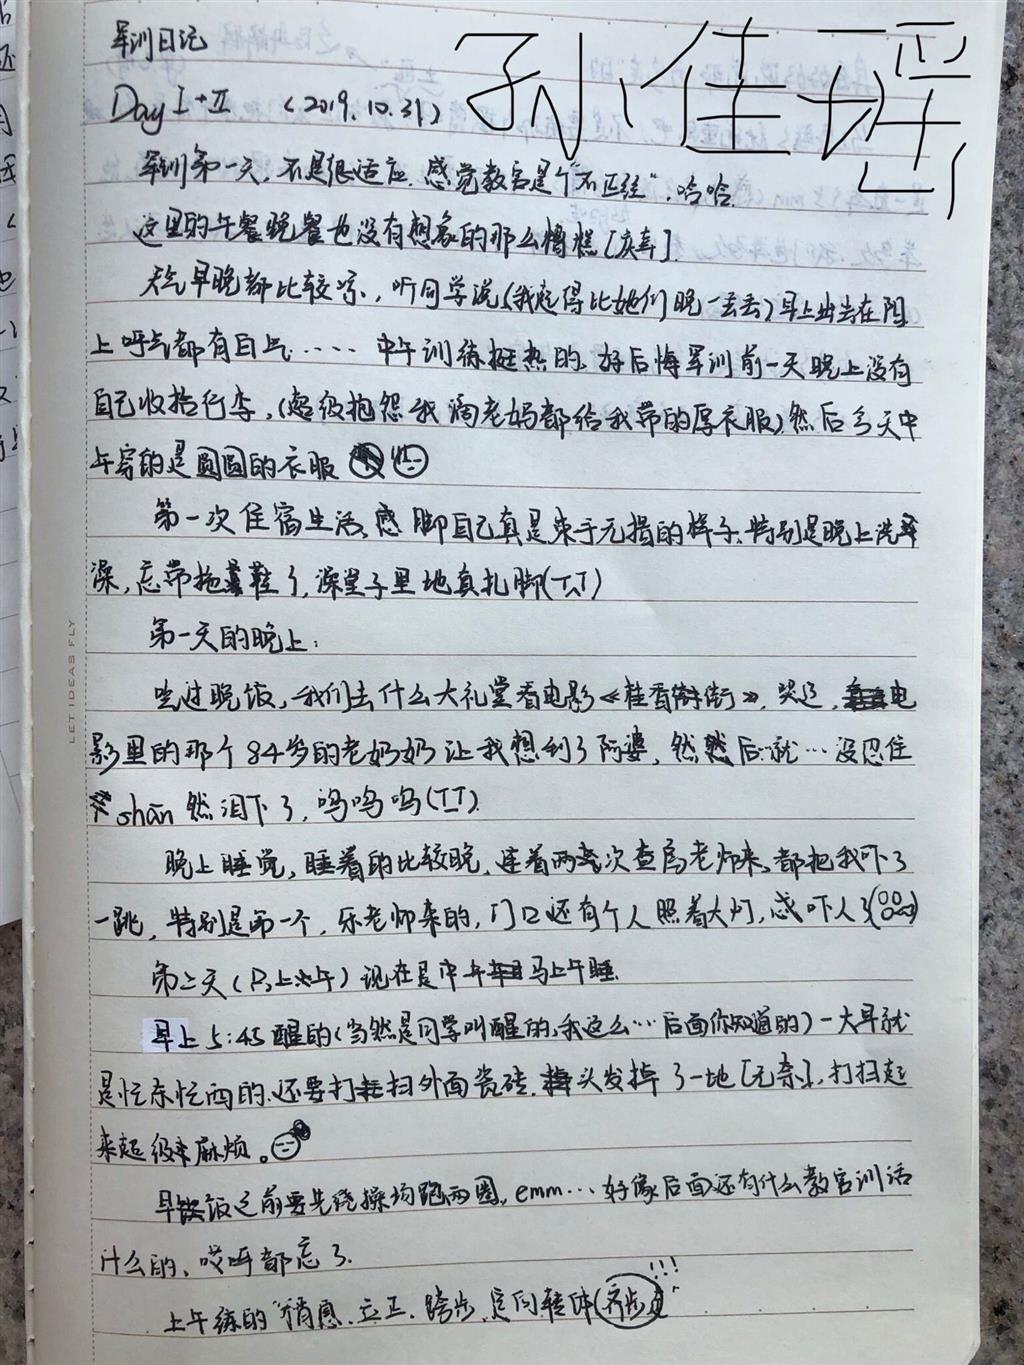 军训日记
孙佳瑶
Day I+II (2019.10.31)
军训第一天,不是很适应,感觉教官是个"不正经",哈哈.
这里的午餐晚餐也没有想象的那么糟糕[庆幸].
天气早晚都比较凉,听同学说(我起得比她们晚一丢丢)早上出去在阳
上呼气都有白气····中午训练挺热的.好后悔军训前一天晚上没有
自己收拾行李,(超级抱怨我 老妈都给我带的厚衣服)然后今天中
午穿的是圆圆的衣服
第一次住宿生活,感脚自己真是束手无措的样子.特别是晚上洗
澡,忘带拖鞋了,澡堂子里地真扎脚(T_T)
第一天的晚上:
LET IDEAS FLY
吃过晚饭,我们去什么大礼堂看电影《桂香街》,哭了,电
影里的那个84岁的老奶奶让我想到了阿婆,然然后就···没忍住
shān然泪下了,呜呜呜(T_T)
晚上睡觉,睡着的比较晚,连着两次查房老师来,都把我吓了
一跳,特别是第一个,乐老师来的,门口还有个人照着大灯,感吓人了
第二天(只上半午)现在是中午马上午睡.
早上5:45醒的(当然是同学叫醒的,我这么···后面你知道的)一大早就
是忙东忙西的.还要打扫外面瓷砖.头发掉了一地[无奈],打扫起
来超级麻烦。
早饭之前要先绕操场跑两圈,emm···好像后面还有什么教官训话
什么的,哎呀都忘了.
上午练的"稍息.立正.跨步.定向转体(齐步走
!!!